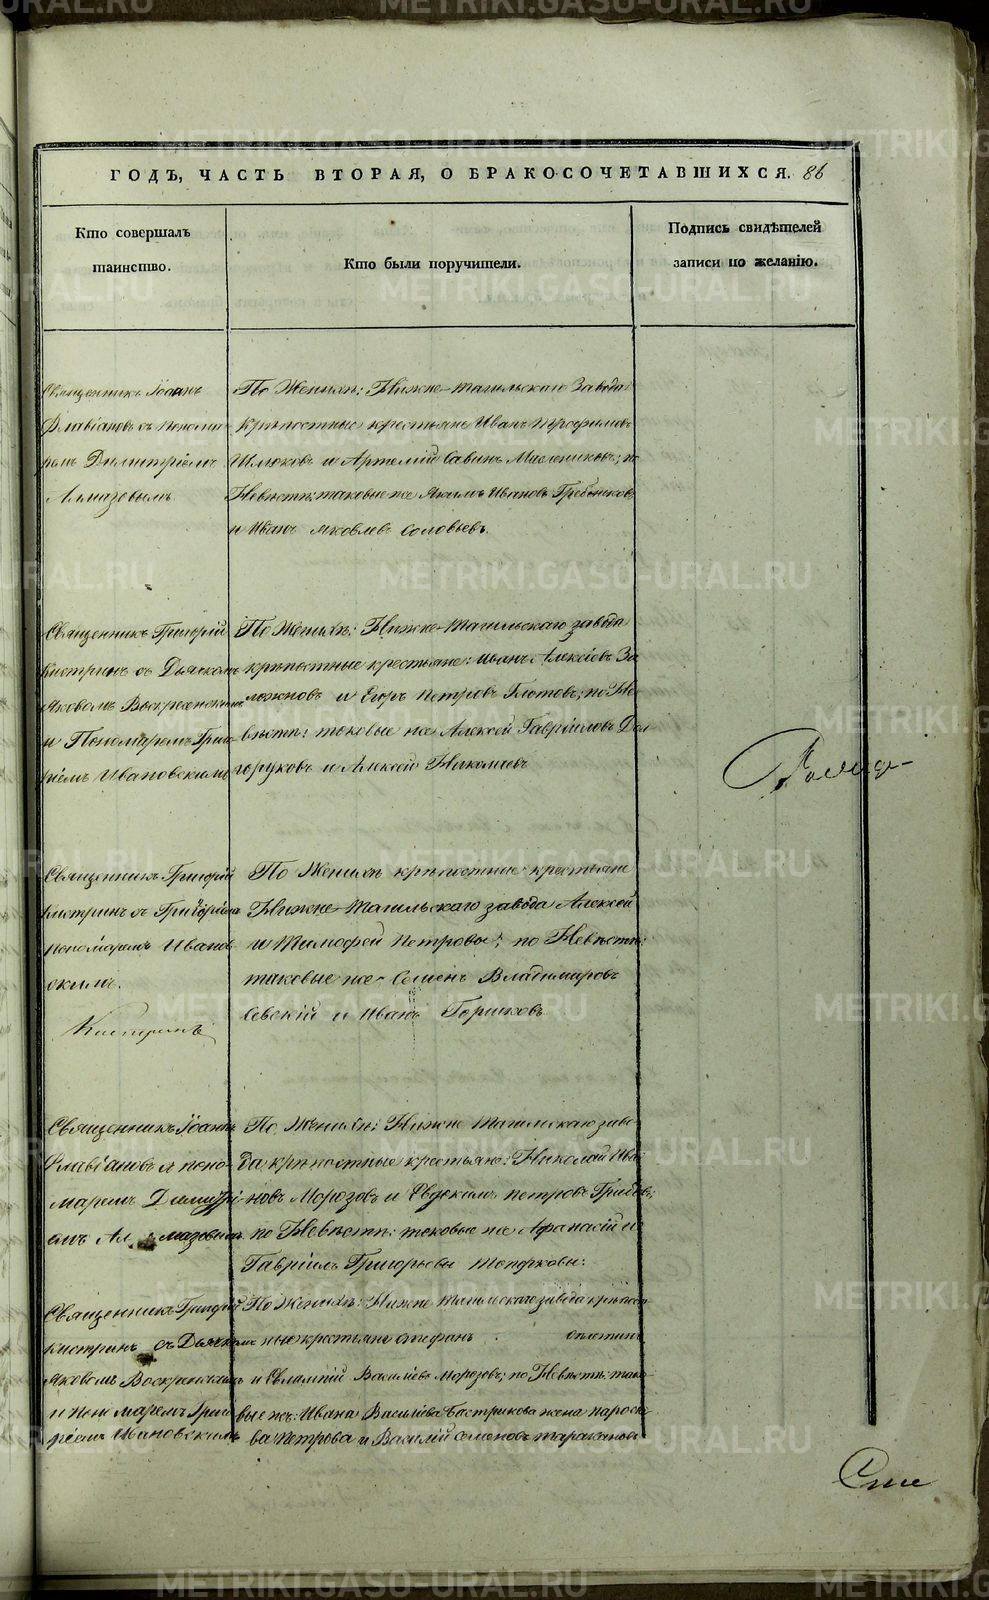 ГОДЪ, ЧАСТЬ ВТОРАЯ, О БРАКОСОЧЕТАВШИХСЯ. 86
Кто совершалъ
таинство.
Кто были поручители.
Подпись свидѣтелей
записи по желанію.
Священникъ Іоаннъ
Флавіановъ съ понома
ремъ Димитріемъ
Алмазовымъ
По Женихѣ: Нижне-тагильскаго Завода
крѣпостные крестьяне Иванъ
и Артемій Савинъ Маслениковъ; по
Невѣстѣ: таковые же Якимъ Ивановъ Гребенковъ
и Иванъ Яковлевъ Соловьевъ.
Священникъ Григорій
Кистринъ съ Дьячкомъ
Яковомъ Воскресенскимъ
и Пономаремъ Григо
ріемъ Ивановскимъ
По Женихѣ: Нижне-Тагильскаго завода
крѣпостные крестьяне: Иванъ Алексѣевъ За
ложновъ и Егоръ Петровъ Глотовъ; по Не
вѣстѣ: таковые же Алексей Гавриловъ Дол
горуковъ и Алексей Николаевъ
Священникъ Григорій
Кистринъ съ
пономаремъ Иванов
скимъ.
Кистринъ
По Женихѣ крѣпостные крестьяне
Нижне-Тагильскаго завода Алексей
и Тимофей Петровы; по Невѣстѣ:
таковые же Семенъ Владимировъ
и Иванъ Горшковъ
Священникъ Іоаннъ
Флавіановъ и поно
маремъ Димитрі
емъ Алмазовымъ
По Женихѣ: Нижне Тагильскаго заво
да крѣпостные крестьяне: Николай Ива
новъ Морозовъ и Евдокимъ Петровъ
по Невѣстѣ: таковые же Афанасій и
Гавріилъ Григорьевы Топорковы:
Священникъ Григорій
Кистринъ съ Дьячкомъ
Яковомъ Воскресенскимъ
и пономаремъ Григо
ріемъ Ивановскимъ
По Женихѣ: Нижне Тагильскаго завода крѣпост
ные крестьяне Стефанъ
и Евлампій Васильевъ Морозовъ; по Невѣстѣ: тако
вые же: Ивана Васильева Бастрикова жена Параске
ва Петрова и Василій Семеновъ Таракановъ
METRIKI.GASO-URAL.RU